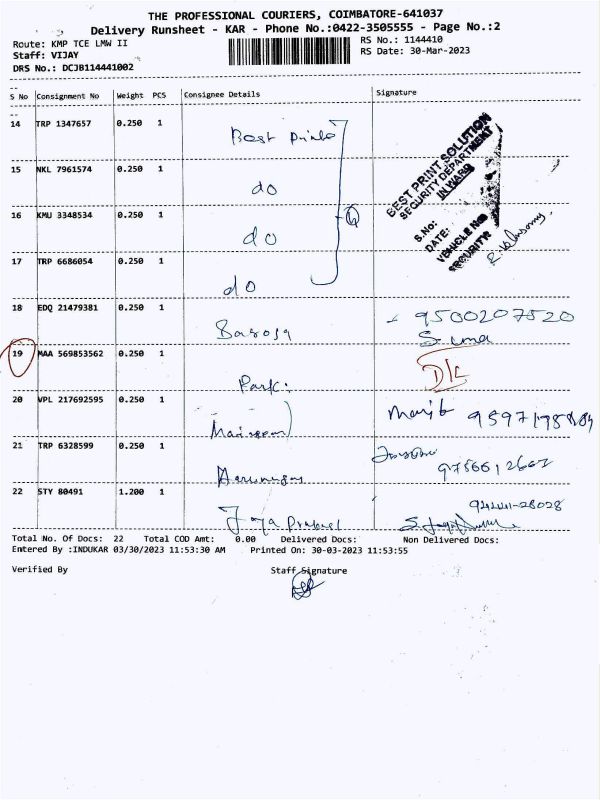 THE PROFESSIONAL COURIERS, COIMBATORE-641037
Delivery Runsheet - KAR - Phone No.:0422-3505555 - Page No.:2
Route: KMP TCE LMW II
RS No.: 1144410
Staff: VIJAY
RS Date: 30-Mar-2023
DRS No.: DCJB114441002
S No Consignment No Weight PCS Consignee Details Signature
14 TRP 1347657 0.250 1
Best Prints
BEST PRINT SOLUTION
SECURITY DEPARTMENT
IN WARD
S.No:
DATE:
VEHICLE NO
SECURITY
15 NKL 7961574 0.250 1
do
16 KMU 3348534 0.250 1
do
17 TRP 6686054 0.250 1
do
18 EDQ 21479381 0.250 1
9500207520
S. uma
19 MAA 569853562 0.250 1
Park:
D/L
20 VPL 217692595 0.250 1
21 TRP 6328599 0.250 1
22 STY 80491 1.200 1
Jaya Prakash
Total No. Of Docs: 22 Total COD Amt: 0.00 Delivered Docs: Non Delivered Docs:
Entered By :INDUKAR 03/30/2023 11:53:30 AM Printed On: 30-03-2023 11:53:55
Verified By Staff Signature